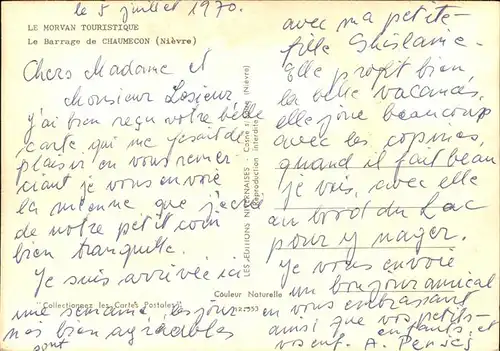 le 5 juillet 1970.
LE MORVAN TOURISTIQUE
Le Barrage de CHAUMECON (Nièvre)
Chers Madame et
Monsieur Losieur
j'ai bien reçu votre belle
carte qui me fesait de
plaisir en vous remer-
ciant je vous envoie
la mienne que
de notre petit coin
bien tranquille.
Je suis arrivée ici
une semaine, les jours
nos bien agréables
sont
"Collectionnez les Cartes Postales"
LES EDITIONS NIVERNAISES - Cosne (Nièvre)
(Reproduction interdite)
Couleur Naturelle
avec ma petite-
fille Ghislaine.
Elle profit bien
la belle vacances,
elle joue beaucoup
avec les copines,
quand il fait beau
je vais, avec elle
au bord du Lac
pour y nager.
Je vous envoie
un bonjour amical
en vous embrassant
ainsi que vos petits-
enfants et
A.